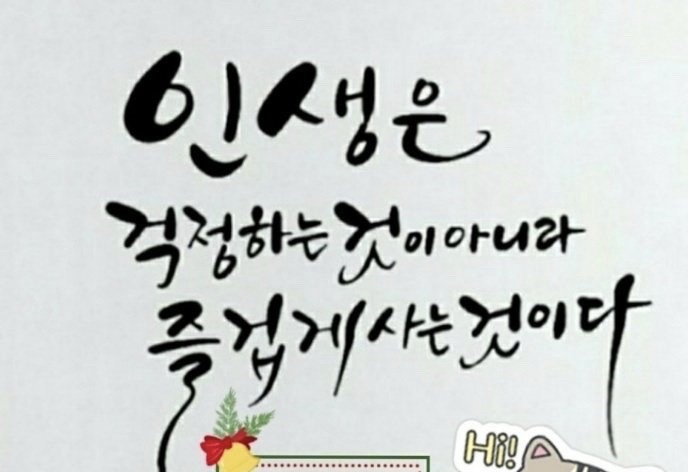 인생은
걱정하는 것이 아니라
즐겁게 사는 것이다
Hi!